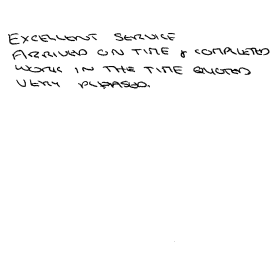 EXCELLENT SERVICE
ARRIVED ON TIME & COMPLETED
WORK IN THE TIME QUOTED
VERY PLEASED.